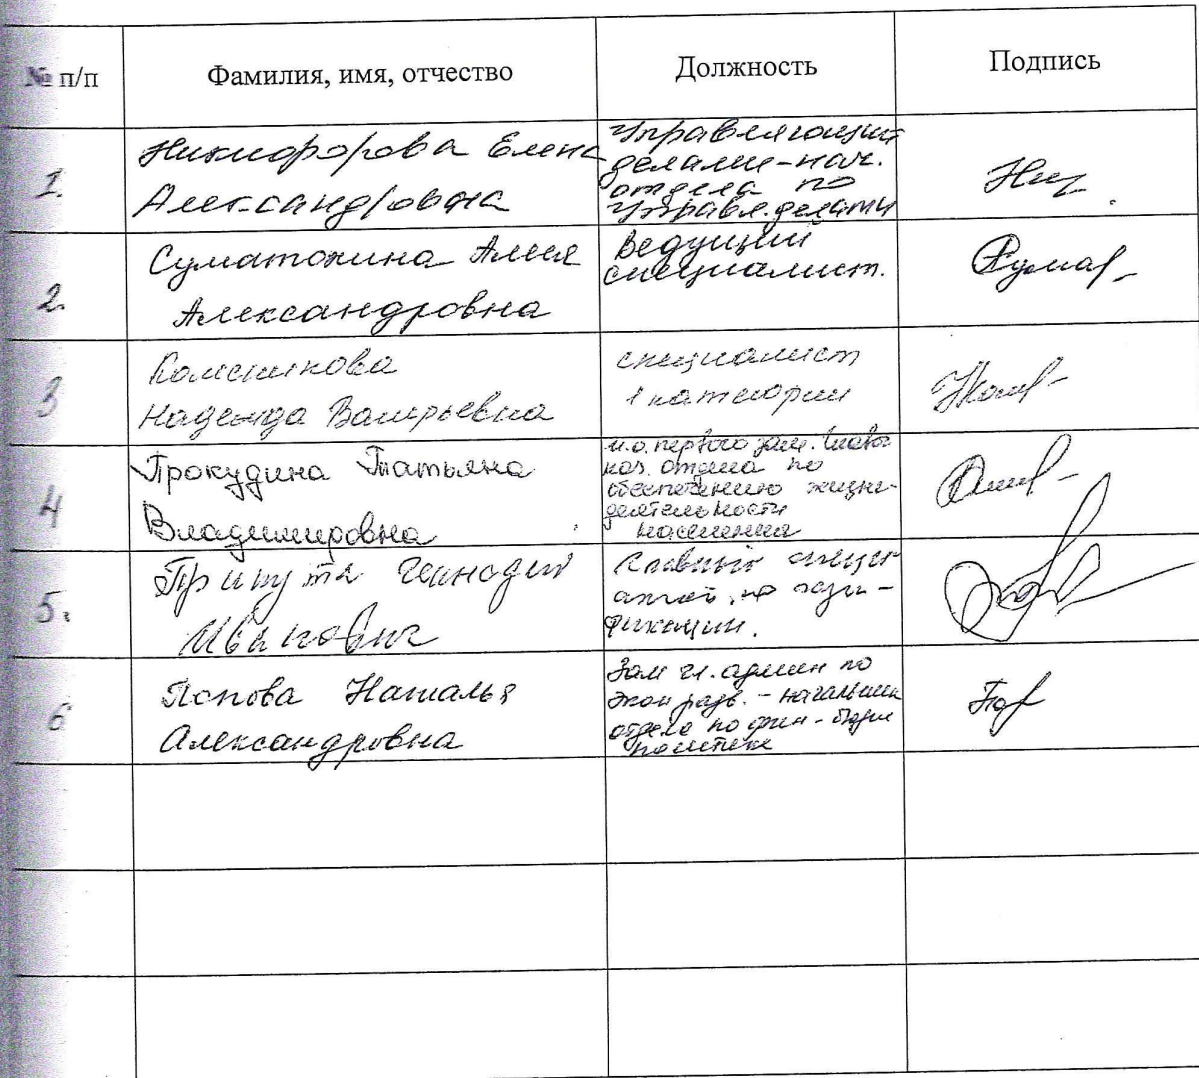 № п/п Фамилия, имя, отчество Должность Подпись
1.
Никифорова Елена
Александровна
Управляющий
делами-нач.
отдела по
управл. делами
2.
Суматохина
Александровна
Ведущий
специалист.
3
Надежда Валерьевна
специалист
1 категории
4
Прокудина Татьяна
Владимировна
и.о. первого зам. главы
нач. отдела по
обеспечению жизне-
деятельности
населения
5.
Геннадий
Иванович
Главный
6
Попова Наталья
Александровна
Зам гл. админ по
экон разв. - начальник
отдела по фин-бюдж
политике